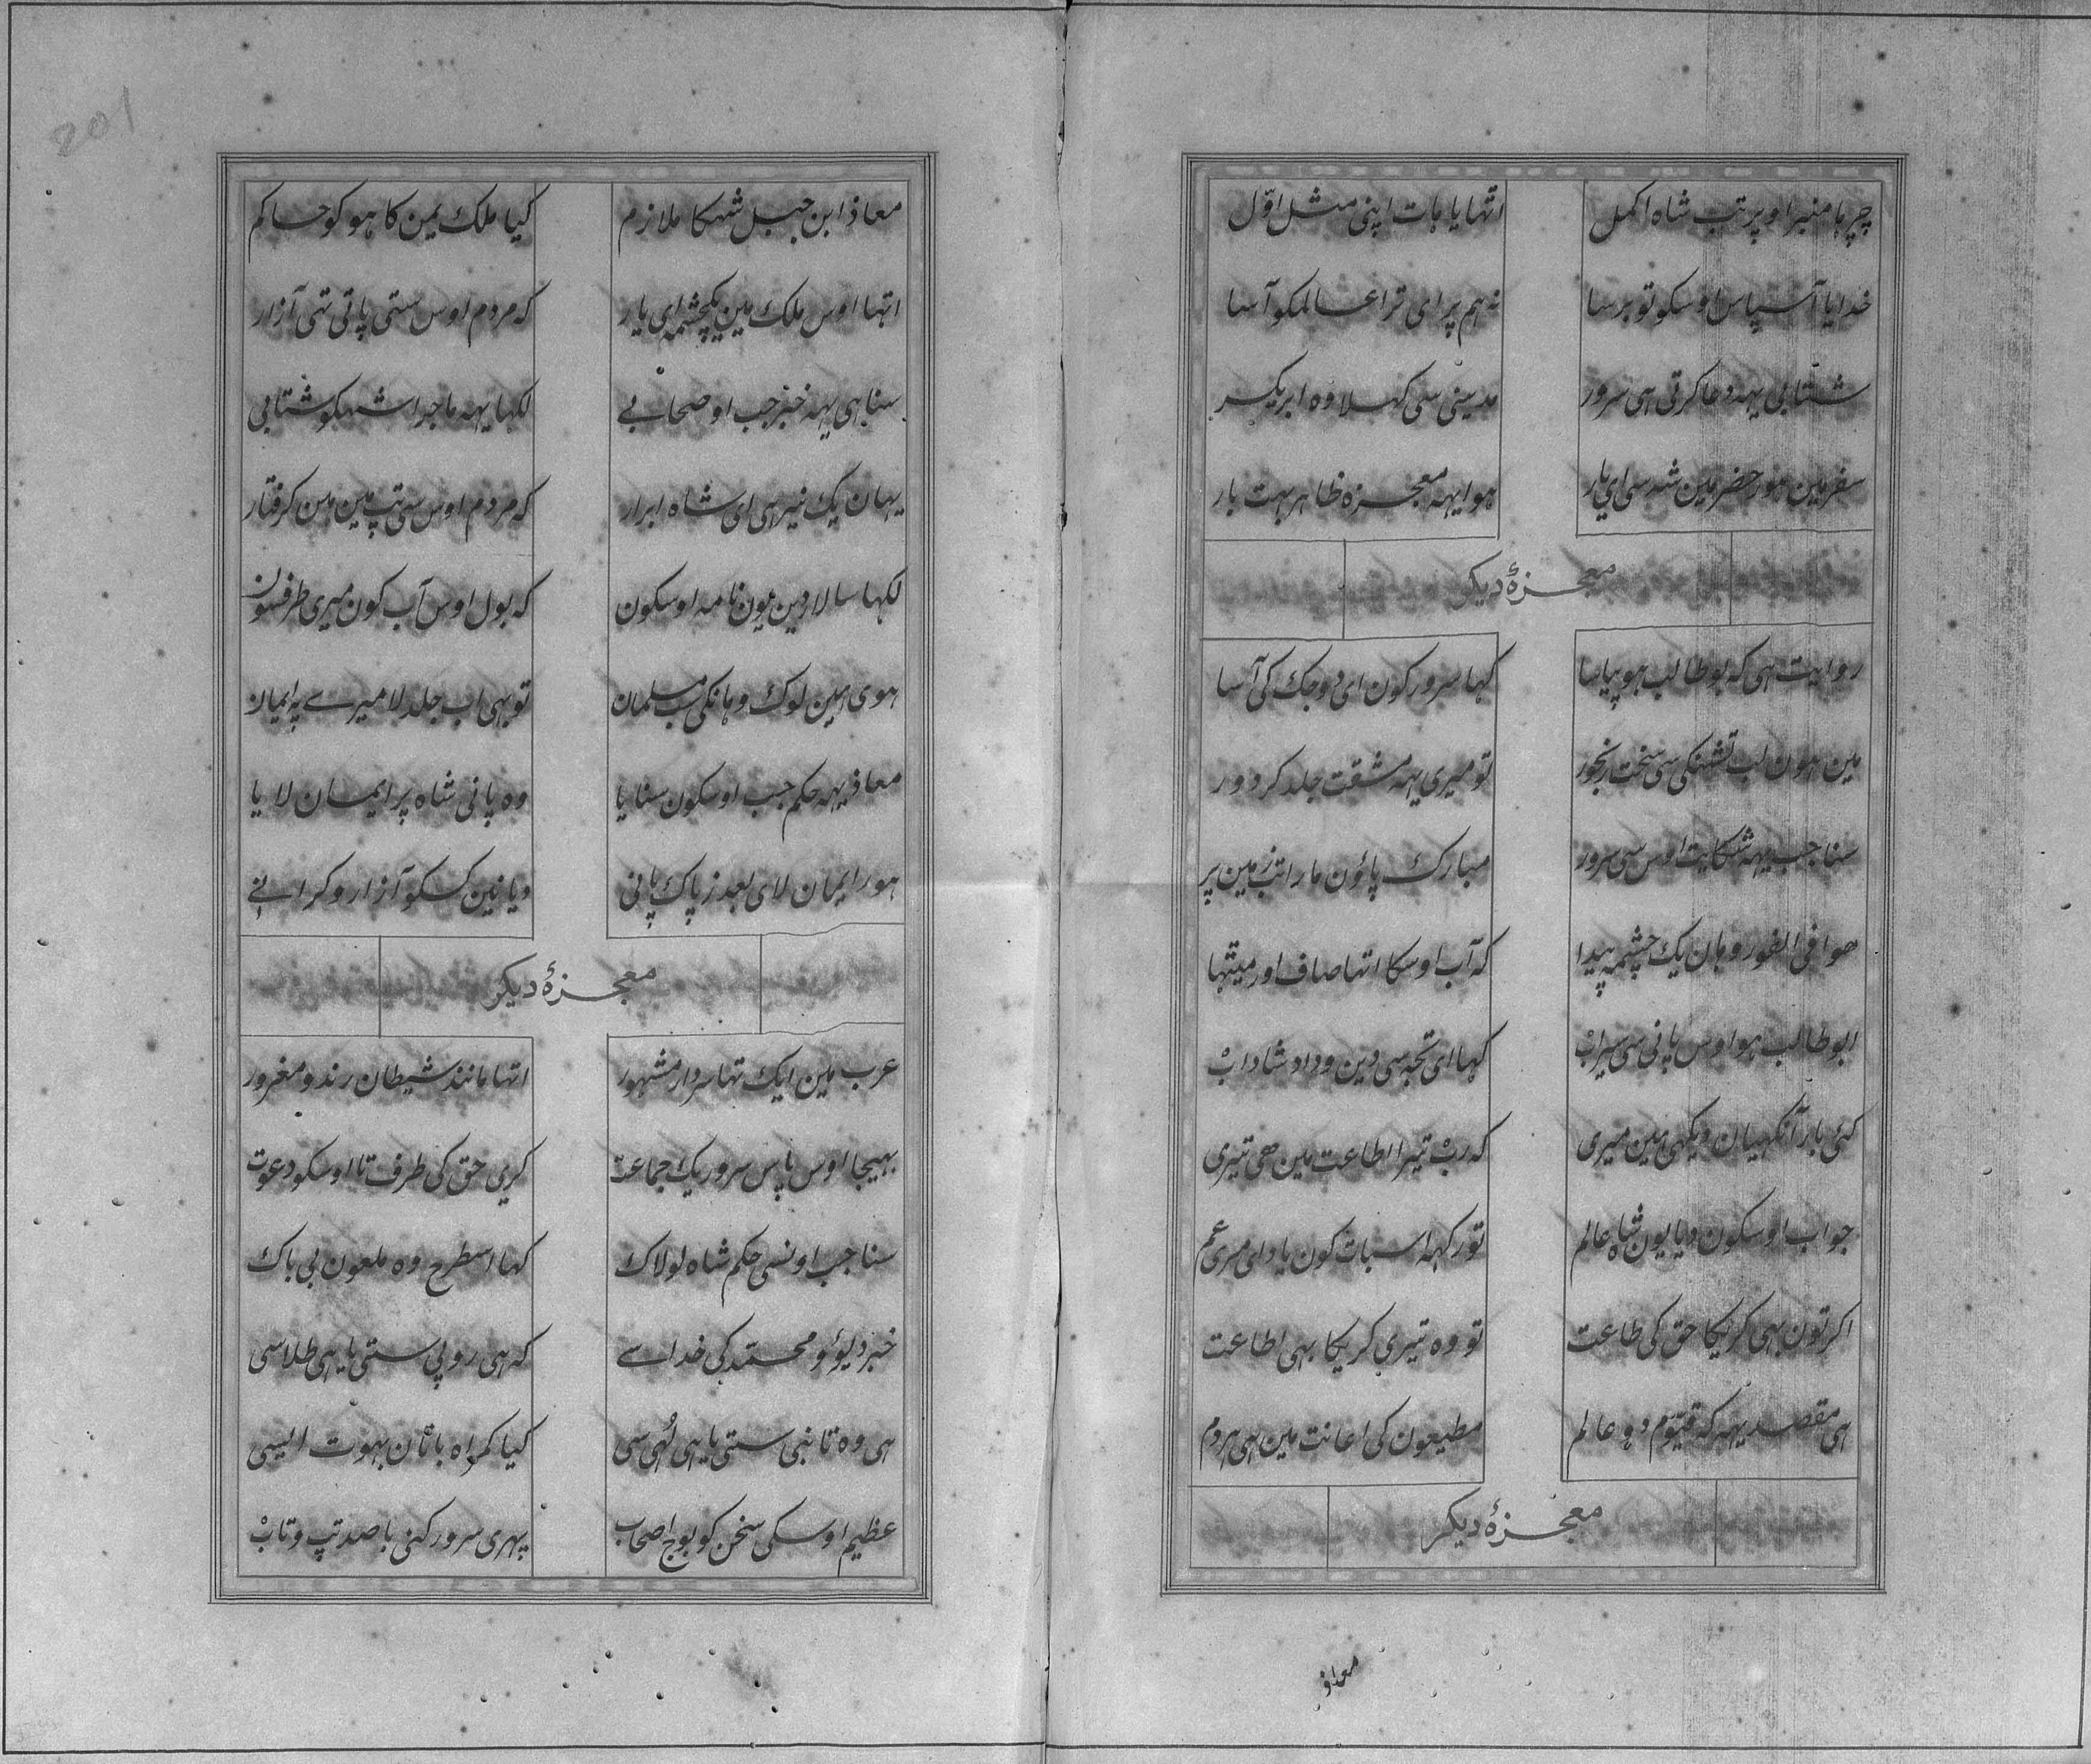 چرہا منبر اوپر تب شاہ اکمل اتہایا ہات اپنی مثل اوّل
خدایا آسپاس اوسکو تو برسا نہ ہم پر ای ترا عالمکو آسا
شتابی یہہ دعا کرتی ہی سرور مدینی سی کہلا وہ ابر یکسر
سفر مین ہور حضر مین شہ سی ای یار ہوا یہہ معجزہ ظاہر بہت بار
معجزۂ دیکر
روایت ہی کہ بوطالب ہو پیاسا کہا سرور کون ای دوجک کی آسا
مین ہون لب تشنکی سی سخت رنجور تو میری یہہ مشقت جلد کر دور
سنا جب یہہ شکایت اوس سی سرور مبارک پاؤن مارا تب زمین پر
ھوا فی الفور وہان یک چشمہ پیدا کہ آب اوسکا اتہا صاف اور میتہا
ابوطالب ہوا اوس پانی سی سیراب کہا ای تجہ سی دین و داد شاداب
کئی بار آنکہیان دیکہی ہین میری کہ رب تیرا اطاعت مین ھی تیری
جواب اوسکون دیا یون شاہ عالم تو رکہہ اسبات کون یاد ای مری عم
اکر تون بہی کریکا حق کی طاعت تو وہ تیری کریکا بہی اطاعت
ہی مقصد یہہ کہ قیّوم دو عالم مطیعون کی اعانت مین ہی ہردم
معجزۂ دیکر
معاذ
201
معاذ ابن جبل شہکا ملازم کیا ملک یمن کا ہو کو حاکم
اتہا اوس ملک مین یکچشمہ ای یار کہ مردم اوس ستی پاتی تہی آزار
سنا ہی یہہ خبر جب او صحابے لکہا یہہ ماجرا شہکو شتابی
یہان یک نیر ہی ای شاہ ابرار کہ مردم اوس سی تپ مین ہین کرفتار
لکہا سالار دین یون نامہ اوسکون کہ بول اوس آب کون میری طرفسون
ہوی ہین لوک وہانکی سب مسلمان تو بہی اب جلد لا میرے پہ ایمان
معاذ یہہ حکم جب اوسکون سنایا وہ پانی شاہ پر ایمان لایا
ہور ایمان لای بعد ز پاک پانی دیا نین کسکو آزار و کرانے
معجزۂ دیکر
عرب مین ایک تہا سردار مشہور اتہا مانند شیطان رند و مغرور
بہیجا اوس پاس سرور یک جماعت کری حق کی طرف تا اوسکو دعوت
سنا جب اونسی حکم شاہ لولاک کہا اسطرح وہ ملعون بی باک
خبر دیؤ و محمّد کی خدا سے کہ ہی روپی ستی یا ہی طلا سی
ہی وہ تانبی ستی یا ہی لُہی سی کیا کمراہ باتان بہوت ایسی
عظیم اوسکی سخن کو بوج اصحاب پہری سرور کنی با صد تپ و تاب